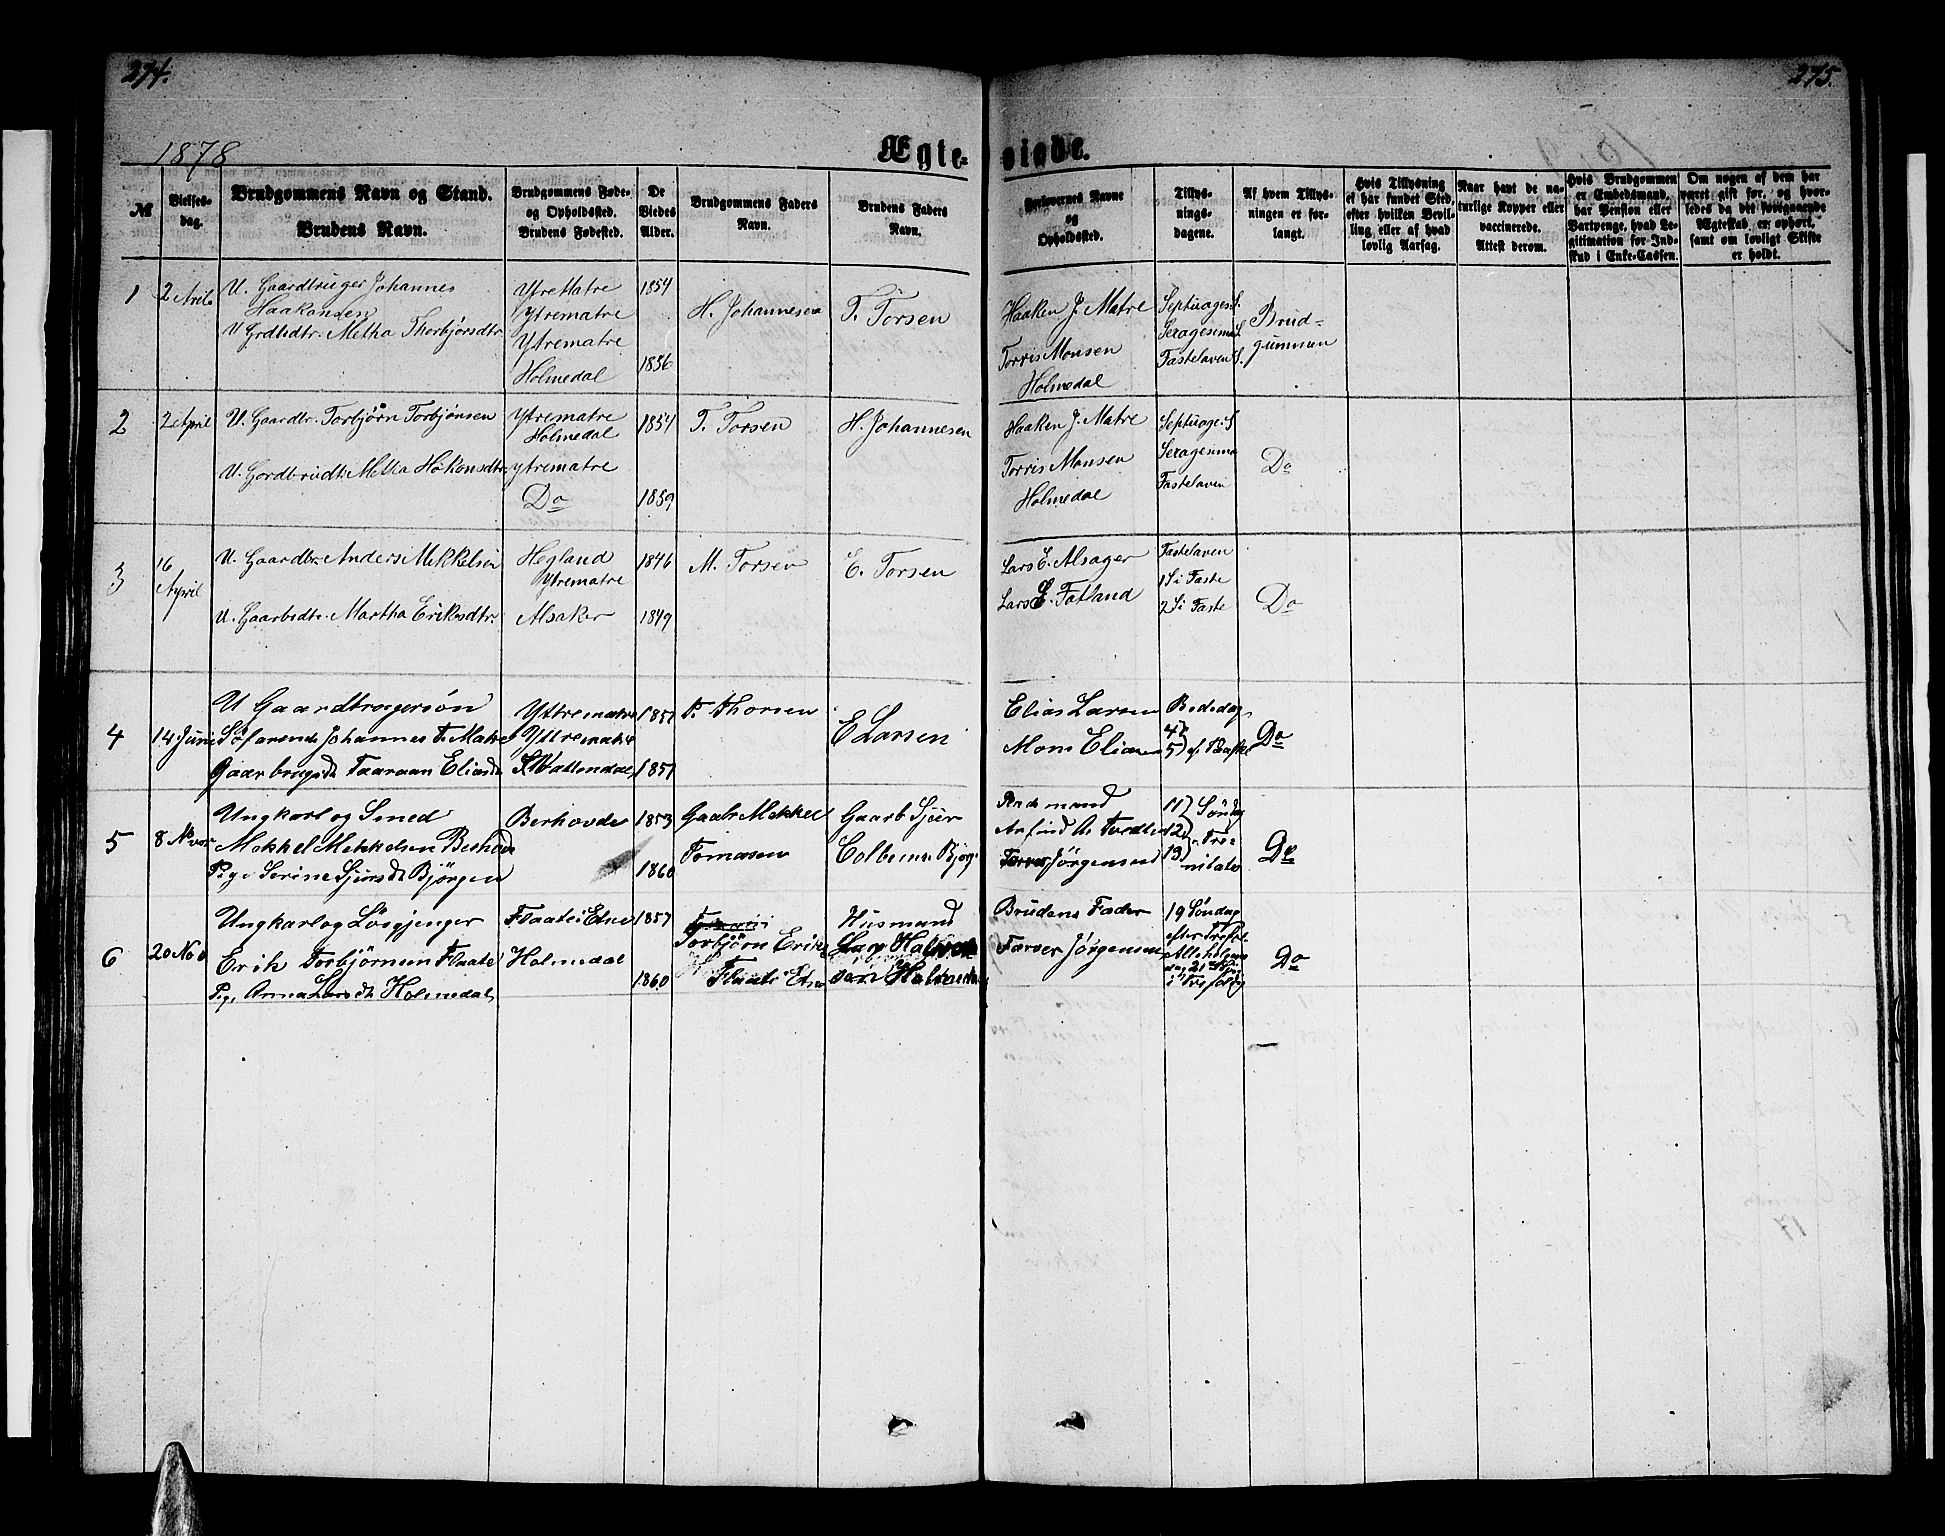 274.
275.
1878
Ægte-
viede.
№
Vielses-
dag.
Brudgommens Navn og Stand.
Brudens Navn.
Brudgommens Føde-
og Opholdsted.
Brudens Fødested.
De
Viedes
Alder.
Brudgommens Faders
Navn.
Brudens Faders
Navn.
Forlovernes Navne
og
Opholdssted.
Tillys-
nings-
dagene.
Af hvem Tillys-
ningen er for-
langt.
Hvis Tillysning
ei har fundet Sted,
efter hvilken Bevil-
ling, eller af hvad
lovlig Aarsag.
Naar havt de na-
turlige Kopper eller
vaccinerede.
Attest derom.
Hvis Brudgommen
er Embedsmand,
har Pension eller
Vartpenge, hvad Le-
gitimation for Ind-
skud i Enke-Cassen.
Om nogen af dem har
været gift før, og hvor-
ledes da det foregaaende
Ægteskab er ophørt,
samt om lovligt Skifte
er holdt.
1
2 April
U. Gaardbruger Johannes
Haakonsen
U Grdbdtr. Metha Thorbjørsdtr
Ytre Matre
Ytrematre
Ytrematre
Holmedal
1854
1856
H. Johannesen
T. Torsen
Haaken J. Matre
Torris Monsen
Holmedal
Septuages. S.
Sexagesima S.
Fastelaven S.
Brud-
gummen
2
2 April
U. Gaardbr. Torbjørn Torbjønsen
U. Gordbrudt. Metha Hokonsdtr.
Ytrematre
Holmedal
ytrematre
Do
1854
1859
T. Torsen
H. Johannesen
Haaken J. Matre
Torris Monsen
Holmedal
Septuage. S
Sexagesima
Fastelaven
Do
3
16
April
U. Gaardbr. Anders Mekkelsen
U. Gaarbrdtr. Martha Eriksdtr.
Hegland
Ytrematre
Alsaker
1846
1849
M. Torsen
E. Torsen
Lars E. Alsager
Lars E. Fatland
Fastelaven
1 S i Faste
2 S i Faste
Do
4
14 Juni
U Gaardbrugersøn
Søfarende Johannes T. Matre
Gaarbrugsdt Taaraan Eliasdt
Yttrematre
Yttrematre
Vattendal
1851
1851
T. Thorsen
E Larsen
Elias Larsen
Mons Eliasen
Bededag
4
5 ef. Paaske
Do
5
8 Nvor
Ungkarl og Smed
Mekkel Mekkelsen Berhovde
Pige Serine Sjursdt Bjørgen
Berhovde
1853
1860
Gaabr Mekkel
Tomasen
Gaarb Sjur
Colbens. Bjørg
mand
Anfind A.
Jørgensen
11 Søndag
12 Tre-
13 nitatis
Do
6
20 Nov
Ungkarl og Løsgjenger
Erik Torbjørnsen Flaate
Pige Anna Larsdt Holmedal
Flaate i Etne
Holmedal
1857
1860
Torbjørn Eriks
Flaate i Etne
Husmand
Lars
sen Holmedal
Brudens Fader
Farver Jørgensen
19 Søndag
efter Trefol.
Allehelgens
dag 21 Søn
i Trefoldg
Do
17